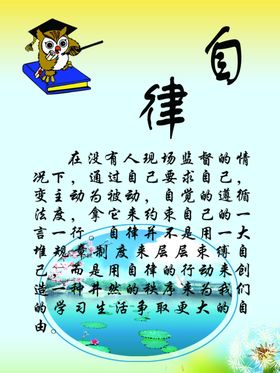 自律
在没有人现场监督的情
况下，通过自己要求自己，
变主动为被动，自觉的遵循
法度，拿它来约束自己的一
言一行。自律并不是用一大
堆规章制度来层层束缚自
己，而是用自律的行动来创
造一种井然的秩序来为我们
的学习生活争取更大的自
由。